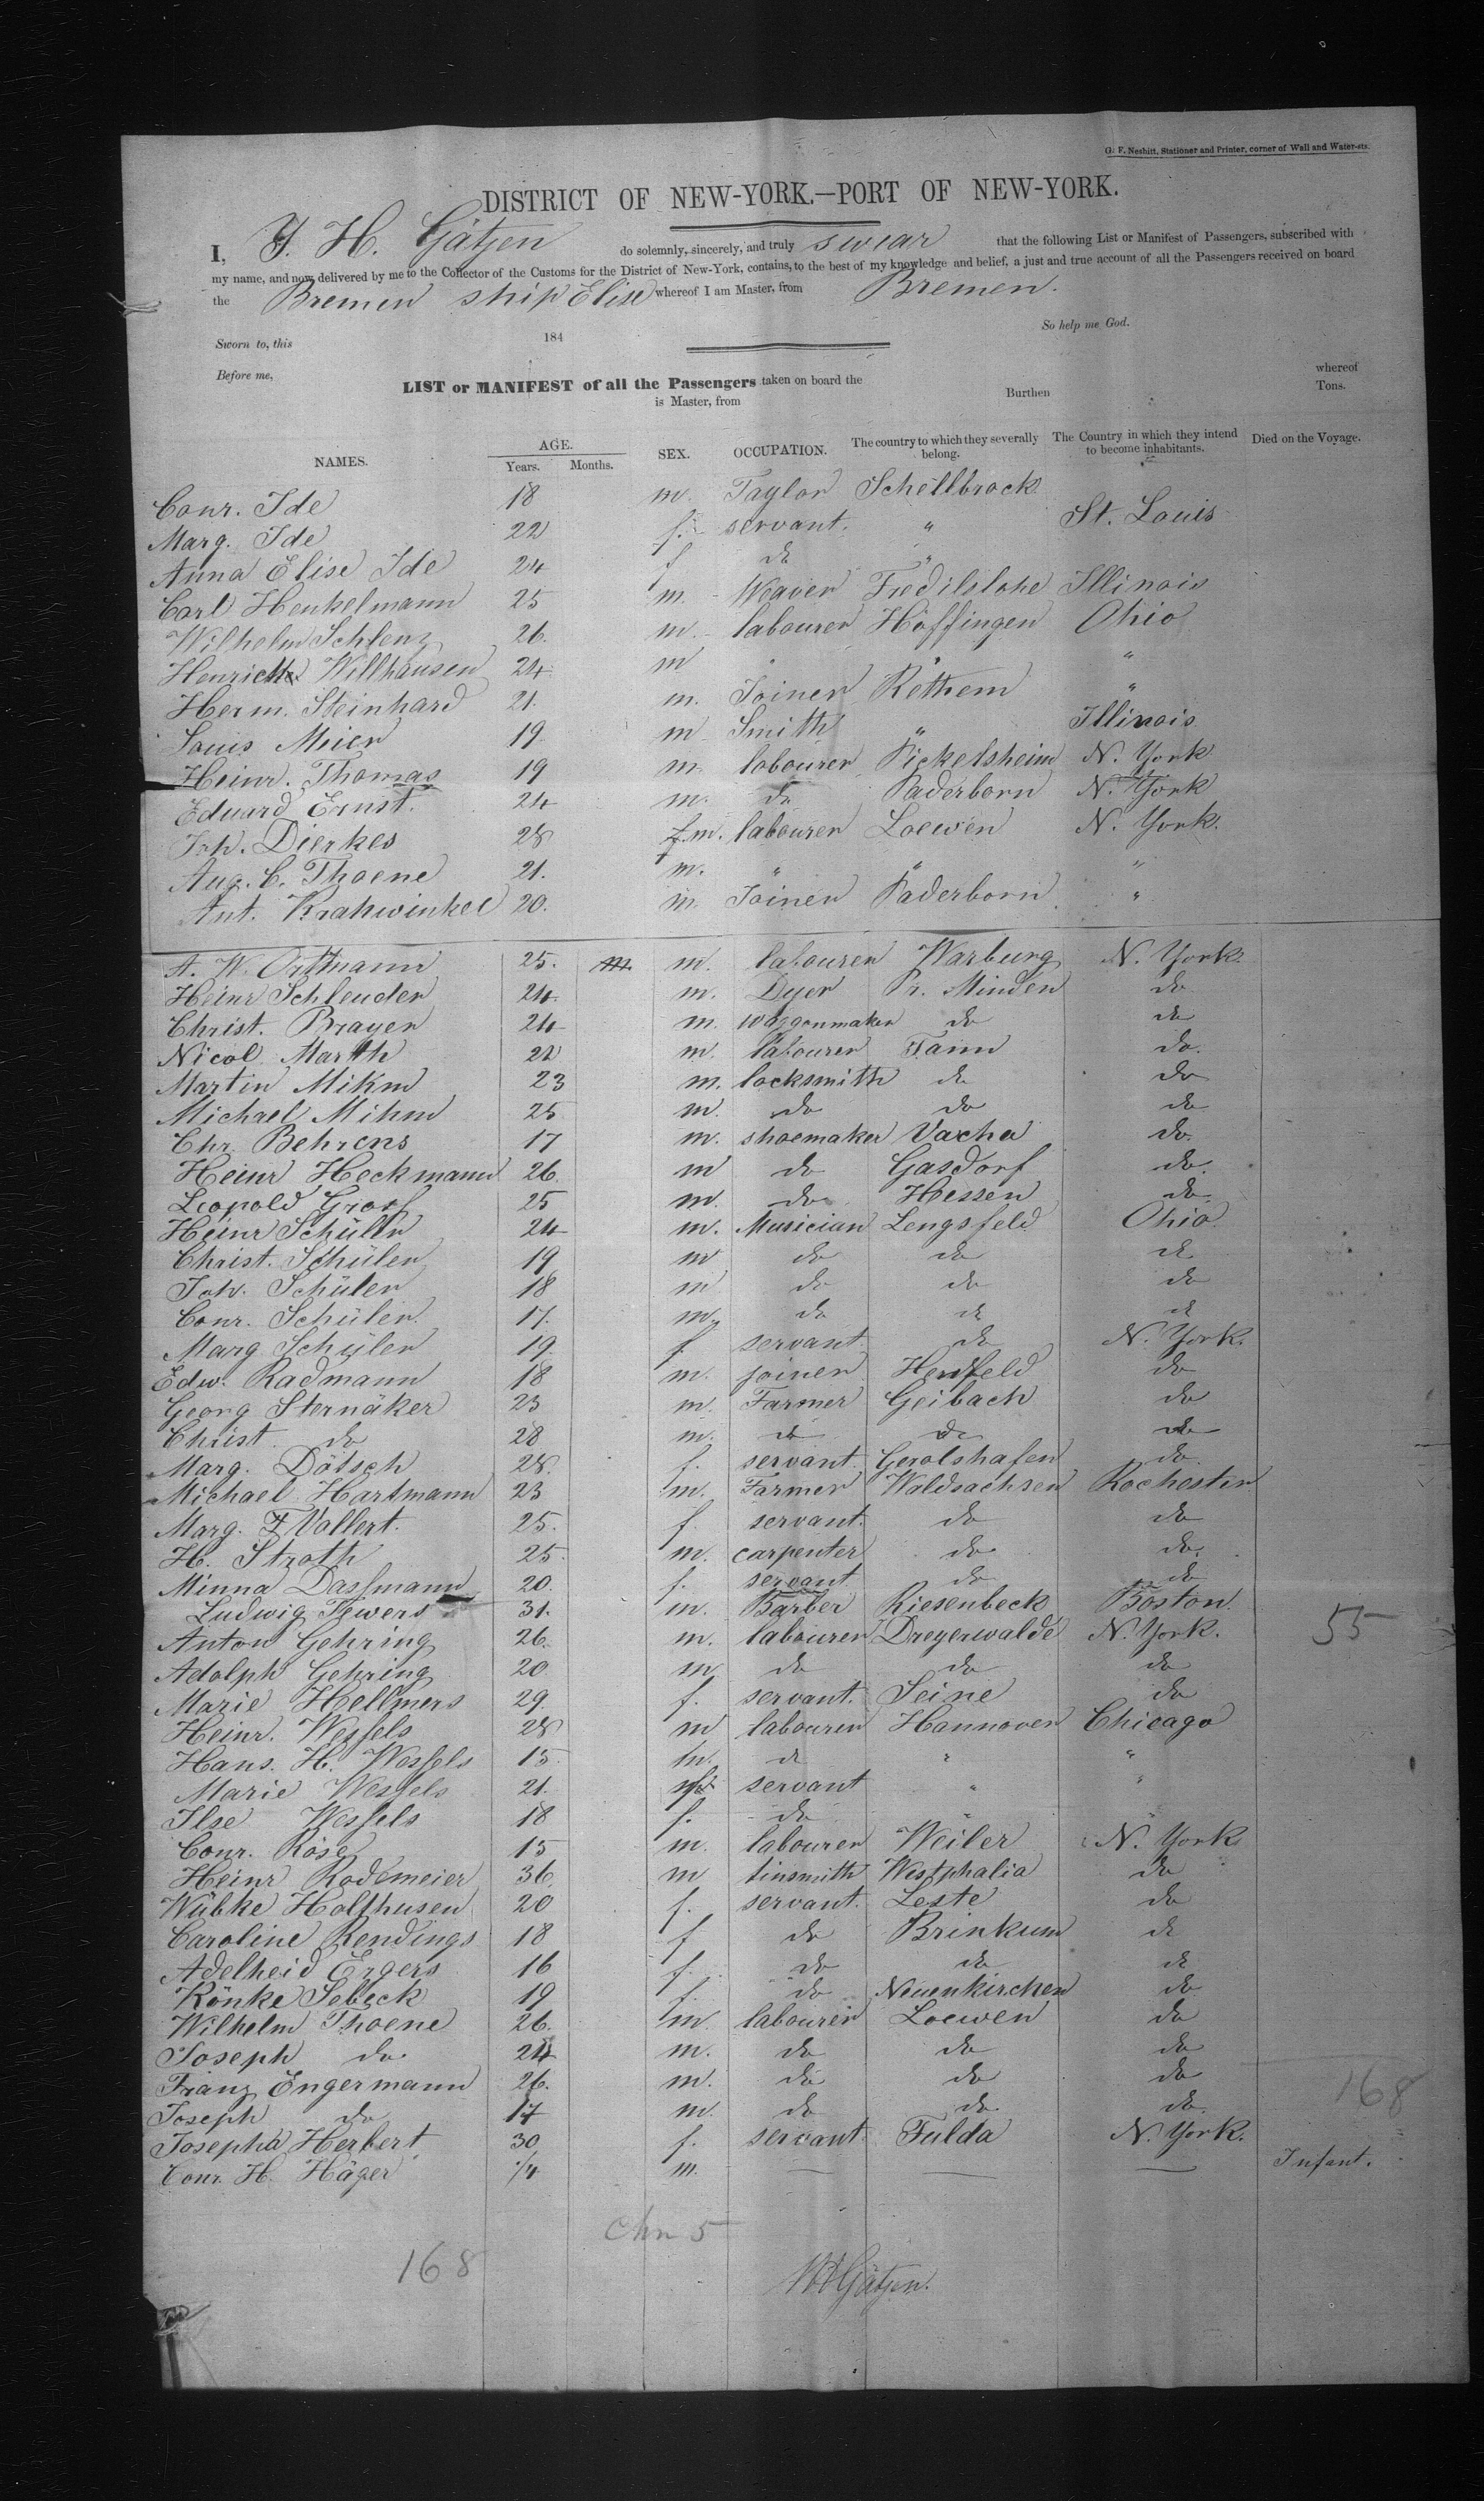 G. F. Nesbitt, Stationer and Printer, corner of Wall and Water-sts.
DISTRICT OF NEW-YORK.—PORT OF NEW-YORK.
I, J. H. Gätjen do solemnly, sincerely, and truly swear that the following List or Manifest of Passengers, subscribed with
my name, and now delivered by me to the Collector of the Customs for the District of New-York, contains, to the best of my knowledge and belief, a just and true account of all the Passengers received on board
the Bremen ship Elise whereof I am Master, from Bremen.
So help me God.
Sworn to, this 184
Before me,
LIST or MANIFEST of all the Passengers taken on board the whereof
is Master, from Burthen Tons.
NAMES. AGE. Years. Months. SEX. OCCUPATION. The country to which they severally belong. The Country in which they intend to become inhabitants. Died on the Voyage.
Conr. Ide 18 m. Taylor Schellbrock
Marg. Ide 22 f. servant. " St. Louis
Anna Elise Ide 24 f do "
Carl Henkelmann 25 m. Weaver Fredilslohe Illinois
Wilhelm Schlenz 26. m. labourer Höffingen Ohio
Henriette Willhausen 24 m " " "
Herm. Steinhard 21. m. Joiner Rethem "
Louis Meier 19 m Smith " Illinois
Heinr. Thomas 19 m. labourer Pickelsheim N. York
Eduard Ernst. 24 m. do Paderborn N. York
Joh. Dierkes 28 m. labourer Loewen N. York.
Aug. C. Thoene 21. m. " " "
Ant. Krahwinkel 20. m. Joiner Paderborn "
A. W. Ortmann 25. m. labourer Warburg N. York.
Heinr Schleuder 24 m. Dyer Pr. Minden do
Christ. Brayer 24 m. waggonmaker do do
Nicol Marth 22 m. labourer Tann do.
Martin Mihm 23 m. locksmith do do
Michael Mihm 25 m. do do do
Chr. Behrens 17 m. shoemaker Vacha do.
Heinr Heckmann 26. m do Gasdorf do.
Leopold Grosf 25 m. do Hessen do
Heinr Schüler 24 m. Musician Lengsfeld Ohio
Christ. Schüler 19 m do do do
Joh. Schüler 18 m do do do
Conr. Schüler 17. m. do do do
Marg Schüler 19. f. servant do N. York.
Edw. Radmann 18 m. joiner Hersfeld do
Georg Sternäker 23 m. Farmer Geibach do
Christ do 28 m. do do do
Marg. Dötsch 28. f. servant Gerolshafen do.
Michael Hartmann 23 m. Farmer Waldsachsen Rochester
Marg. F Vollert. 25. f. servant. do do
H. Stroth 25. m. carpenter do do.
Minna Dassmann 20. f. servant do do
Ludwig Tewers 31. m. Barber Riesenbeck Boston. 55
Anton Gehring 26. m. labourer Dreyerwalde N. York.
Adolph Gehring 20 m. do do do
Marie Hellmers 29. f. servant. Seine do
Heinr. Wessels 28 m labourer Hannover Chicago
Hans. H. Wessels 15. m. do " "
Marie Wessels 21. f servant " "
Ilse Wessels 18 f. do " "
Conr. Röse 15 m. labourer Weiler N. York
Heinr Rodemeier 36. m tinsmith Westphalia do
Wübke Holthusen 20 f. servant. Leste do
Caroline Rendings 18 f do Brinkum do
Adelheid Ergers 16 f. do do do
Rönke Sebeck 19 f. do Neuenkirchen do
Wilhelm Thoene 26. m. labourer Loewen do
Joseph do 24 m. do do do
Franz Engermann 26. m. do do do
Joseph do 17 m. do do do. 168
Josepha Herbert 30 f. servant Fulda N. York.
Conr. H. Häger 1/4 m. — — — Infant.
Chn 5
168
Gätjen.